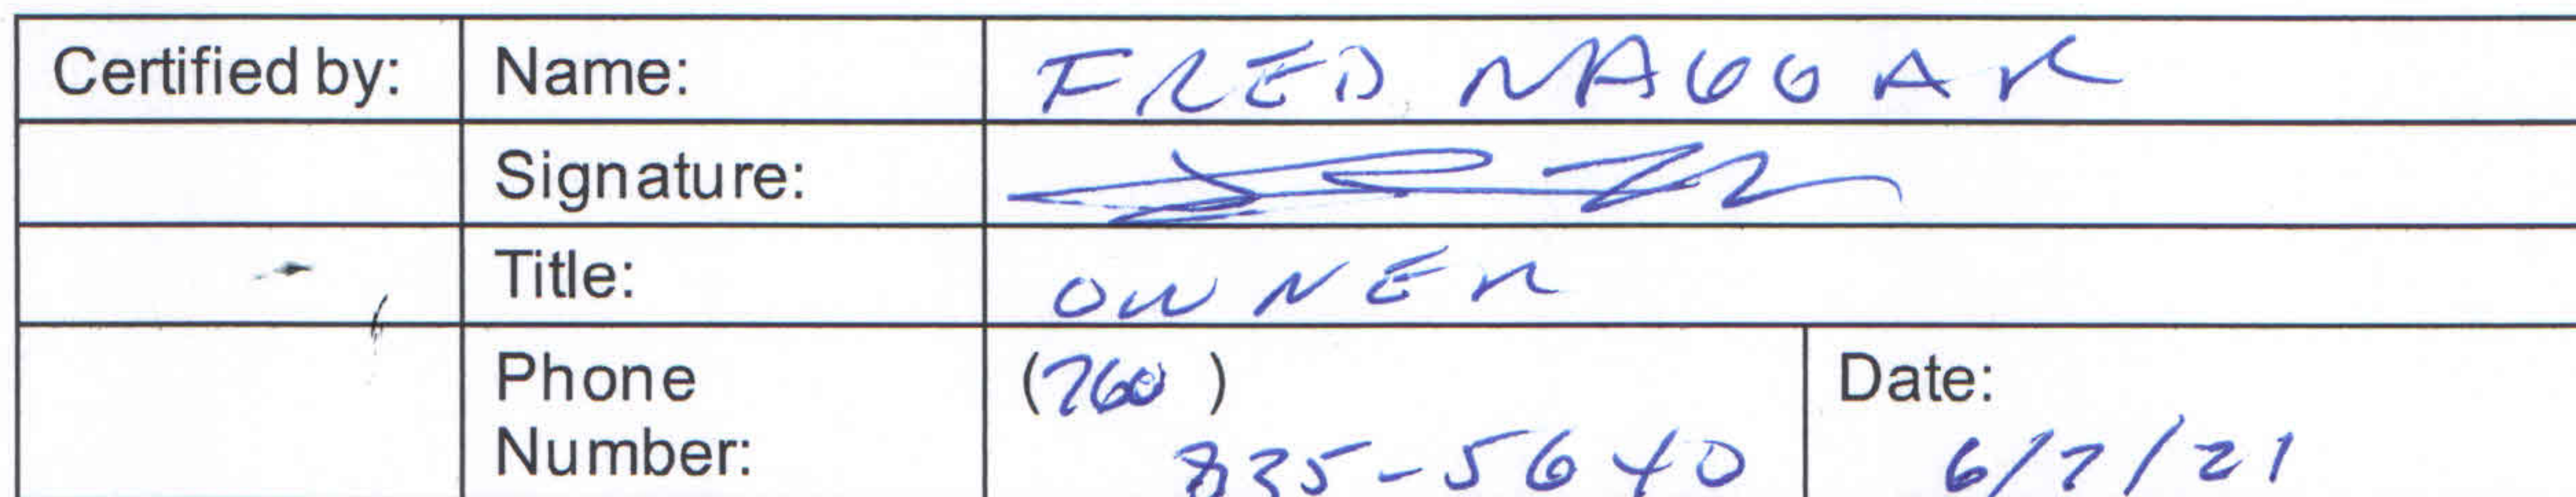 Certified by: Name: FRED NAGGAR
Signature:
Title: OWNER
Phone (760 ) Date:
Number: 835-5640 6/7/21